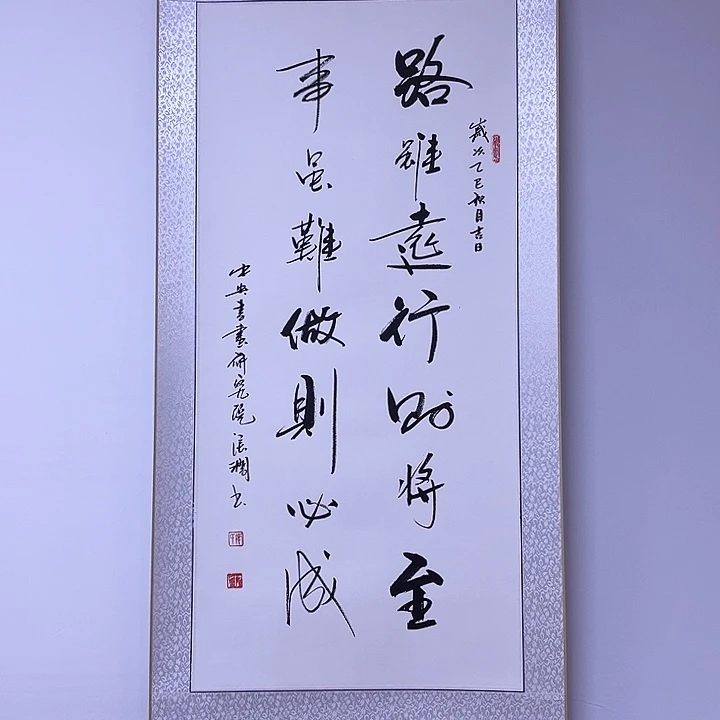 歲次乙巳秋月吉日
路雖遠行则将至
事虽難做則必成
中央書畫研究院张瀾书